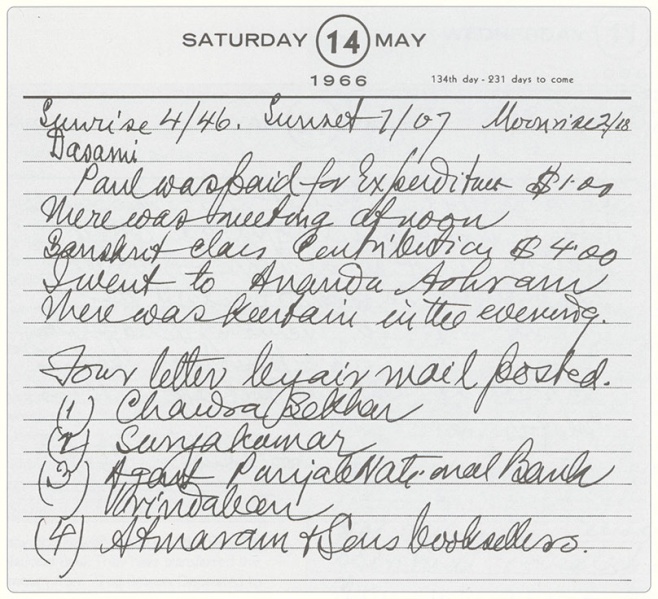 SATURDAY 14 MAY
1966
134th day - 231 days to come
Sunrise 4/46. Sunset 7/07 Moonrise 2/18
Dasami
Paul was paid for Expenditure $1.00
There was meeting at noon
Sanskrit class Contribution $4.00
I went to Ananda Ashram
There was keertain in the evening.
Four letter by air mail posted.
(1) Chandra Sekhar
(2) Surya kumar
(3) Agent Punjab National Bank
Vrindaban
(4) Atmaram & Sons booksellers.